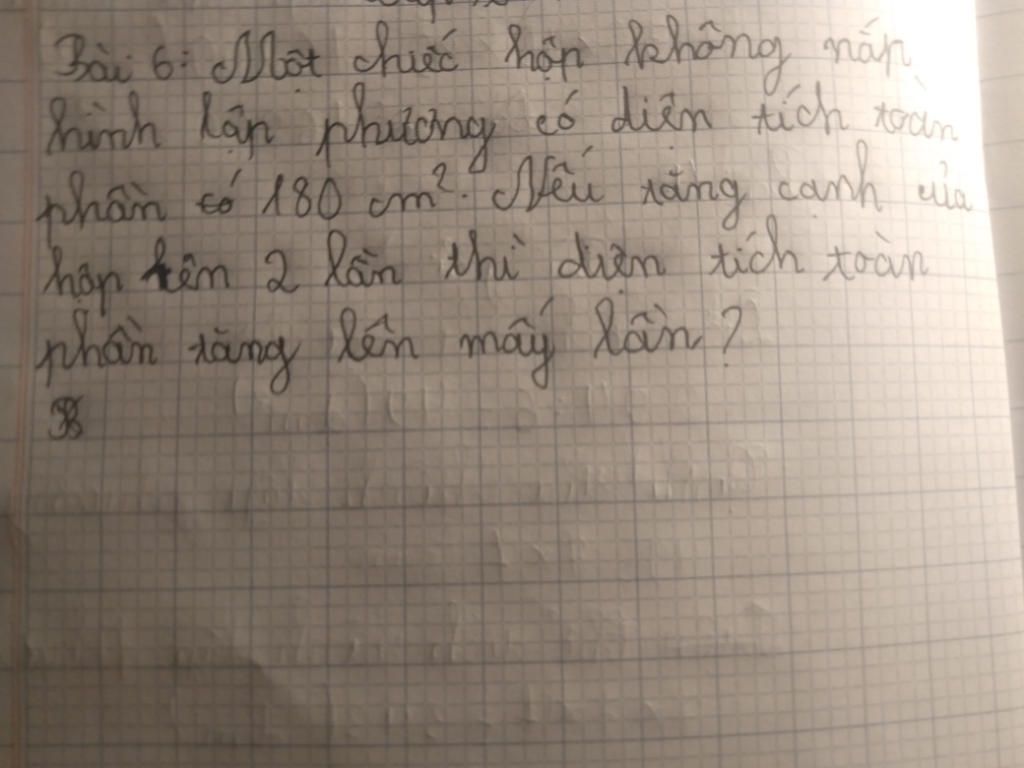 Bài 6: Một chiếc hộp không náp
hình lập phương có diện tích toàn
phần có 180 cm². Nếu tăng canh của
hộp lên 2 lần thì diện tích toàn
phần tăng lên mấy lần?